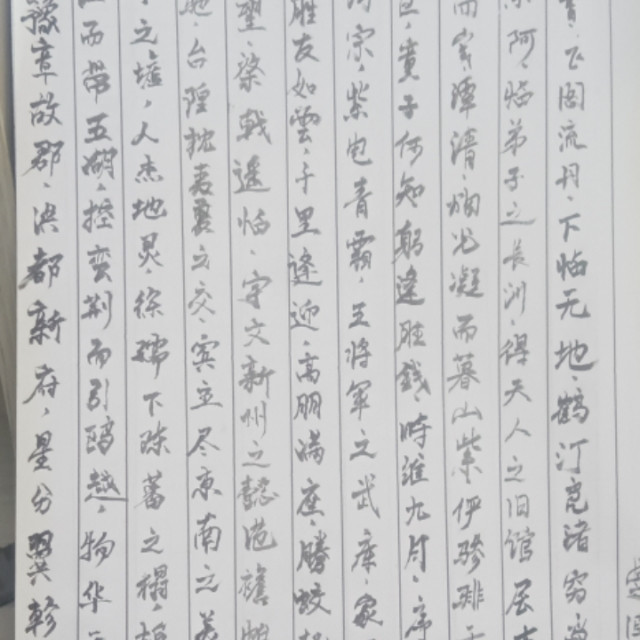 豫章故郡，洪都新府，星分翼轸
而带五湖，控蛮荆而引瓯越，物华
之墟，人杰地灵，徐孺下陈蕃之榻，
台隍枕夷夏之交，宾主尽东南之美
望，棨戟遥临，宇文新州之懿范，襜帷
胜友如雲，千里逢迎，高朋满座，腾蛟
宗，紫电青霜，王将军之武库，家
区，童子何知，躬逢胜饯，时维九月，序
而寒潭清，烟光凝而暮山紫，俨骖騑
阿，临弟子之长洲，得天人之旧馆，层
霄，飞阁流丹，下临无地，鹤汀凫渚，穷岛